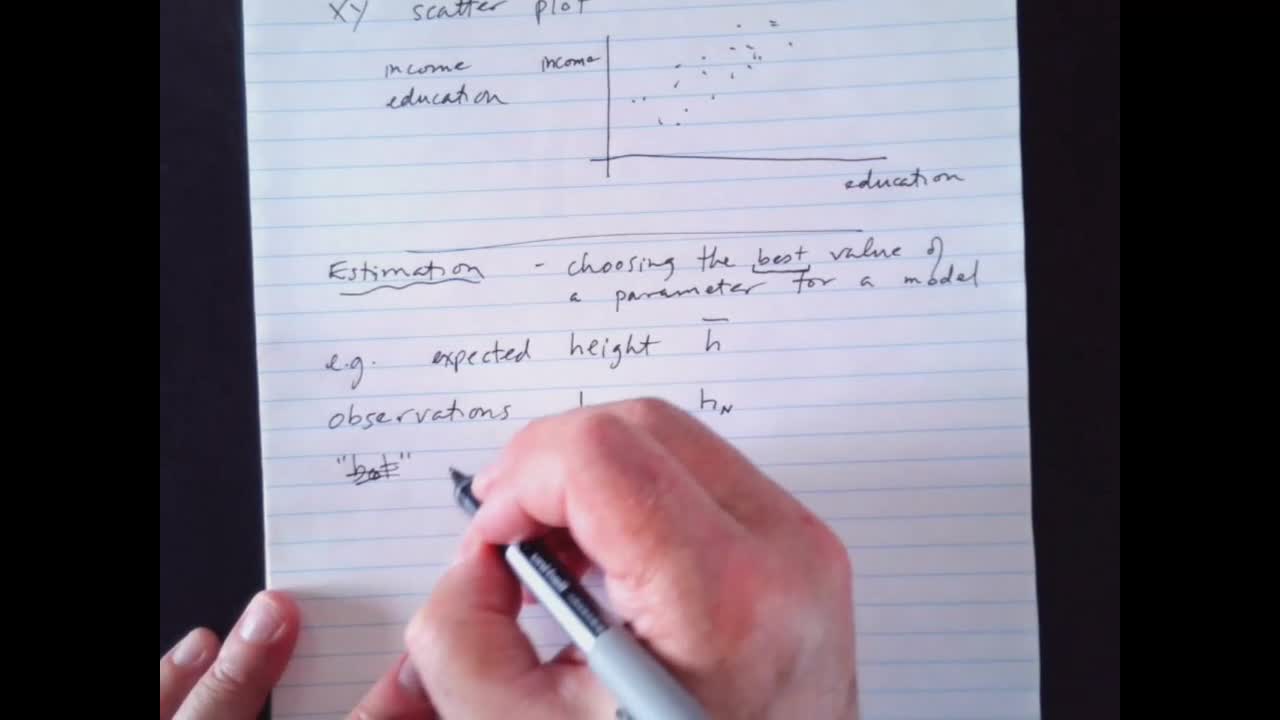 XY scatter plot
income income
education
education
Estimation - choosing the best value of
a parameter for a model
e.g. expected height h̅
observations h_N